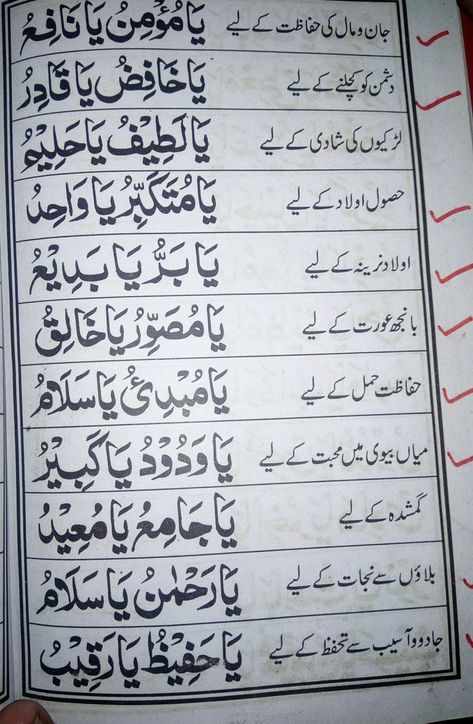 جان و مال کی حفاظت کے لیے یَا مُؤْمِنُ یَا نَافِعُ
دشمن کو کچلنے کے لیے یَا خَافِضُ یَا قَادِرُ
لڑکیوں کی شادی کے لیے یَا لَطِیْفُ یَا حَلِیْمُ
حصول اولاد کے لیے یَا مُتَکَبِّرُ یَا وَاحِدُ
اولاد نرینہ کے لیے یَا بَرُّ یَا بَدِیْعُ
بانجھ عورت کے لیے یَا مُصَوِّرُ یَا خَالِقُ
حفاظت حمل کے لیے یَا مُبْدِئُ یَا سَلَامُ
میاں بیوی میں محبت کے لیے یَا وَدُوْدُ یَا کَبِیْرُ
گمشدہ کے لیے یَا جَامِعُ یَا مُعِیْدُ
بلاؤں سے نجات کے لیے یَا رَحْمٰنُ یَا سَلَامُ
جادو و آسیب سے تحفظ کے لیے یَا حَفِیْظُ یَا رَقِیْبُ